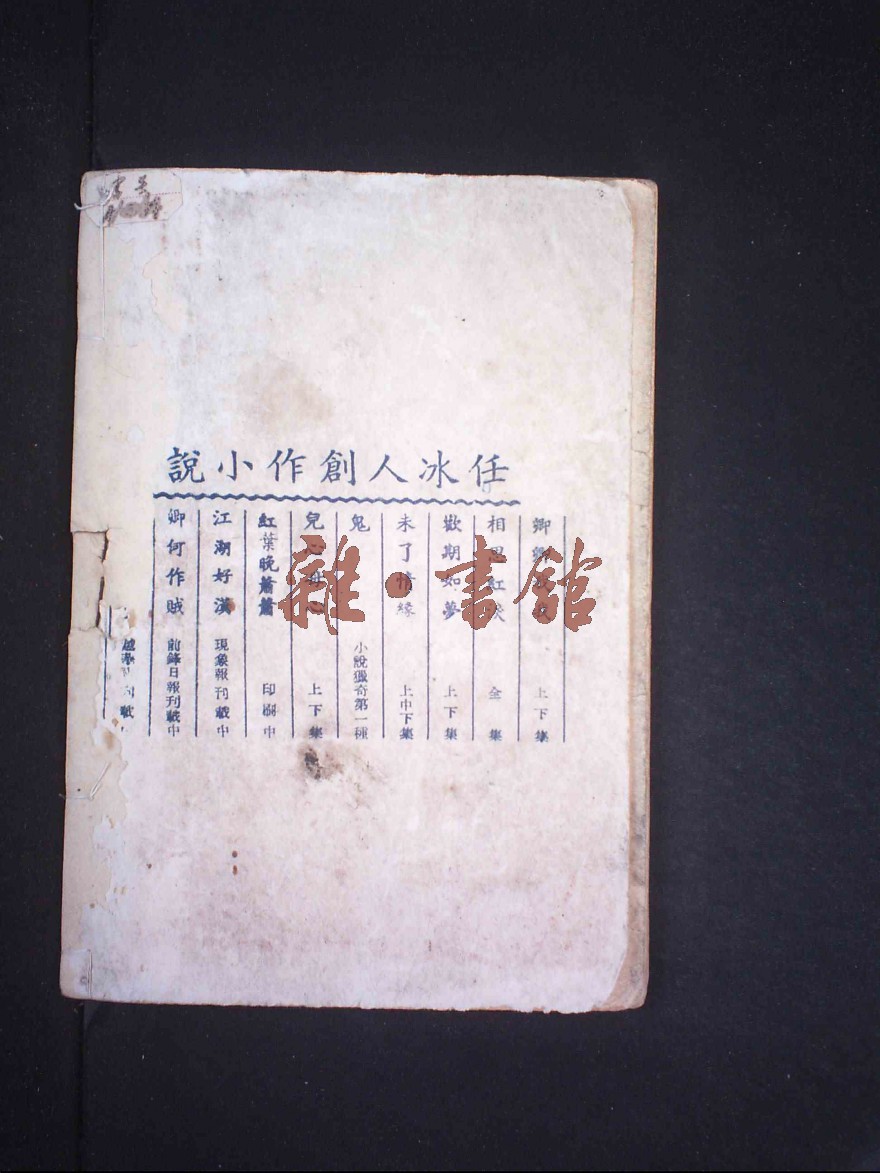 任冰人創作小說
卿 上下集
相思紅 全一集
歡期如夢 上下集
未了情緣 上中下集
鬼 小說獵奇第一種
兒心 上下集
紅葉晚蕭蕭 印刷中
江湖好漢 現象報刊載中
卿何作賊 前鋒日報刊載中
雜·書館